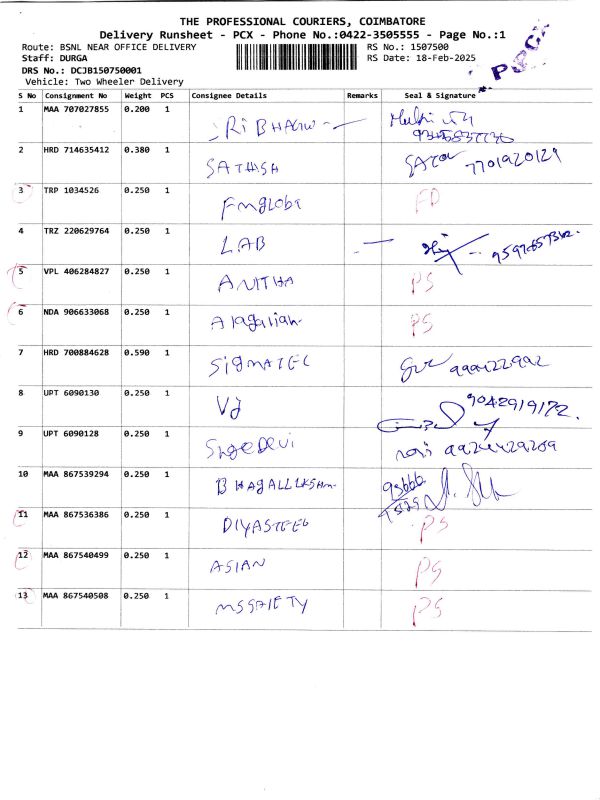 THE PROFESSIONAL COURIERS, COIMBATORE
Delivery Runsheet - PCX - Phone No.:0422-3505555 - Page No.:1
Route: BSNL NEAR OFFICE DELIVERY RS No.: 1507500
Staff: DURGA RS Date: 18-Feb-2025
DRS No.: DCJB150750001
Vehicle: Two Wheeler Delivery
S No Consignment No Weight PCS Consignee Details Remarks Seal & Signature
1 MAA 707027855 0.200 1
2 HRD 714635412 0.380 1 SATHISH 7701920129
3 TRP 1034526 0.250 1 Fmgloba FD
4 TRZ 220629764 0.250 1 LAB
5 VPL 406284827 0.250 1 ANITHA PS
6 NDA 906633068 0.250 1 PS
7 HRD 700884628 0.590 1 SigMATEC
8 UPT 6090130 0.250 1 VJ 9042919172.
9 UPT 6090128 0.250 1
10 MAA 867539294 0.250 1
11 MAA 867536386 0.250 1 DIYASTEEL PS
12 MAA 867540499 0.250 1 ASIAN PS
13 MAA 867540508 0.250 1 PS